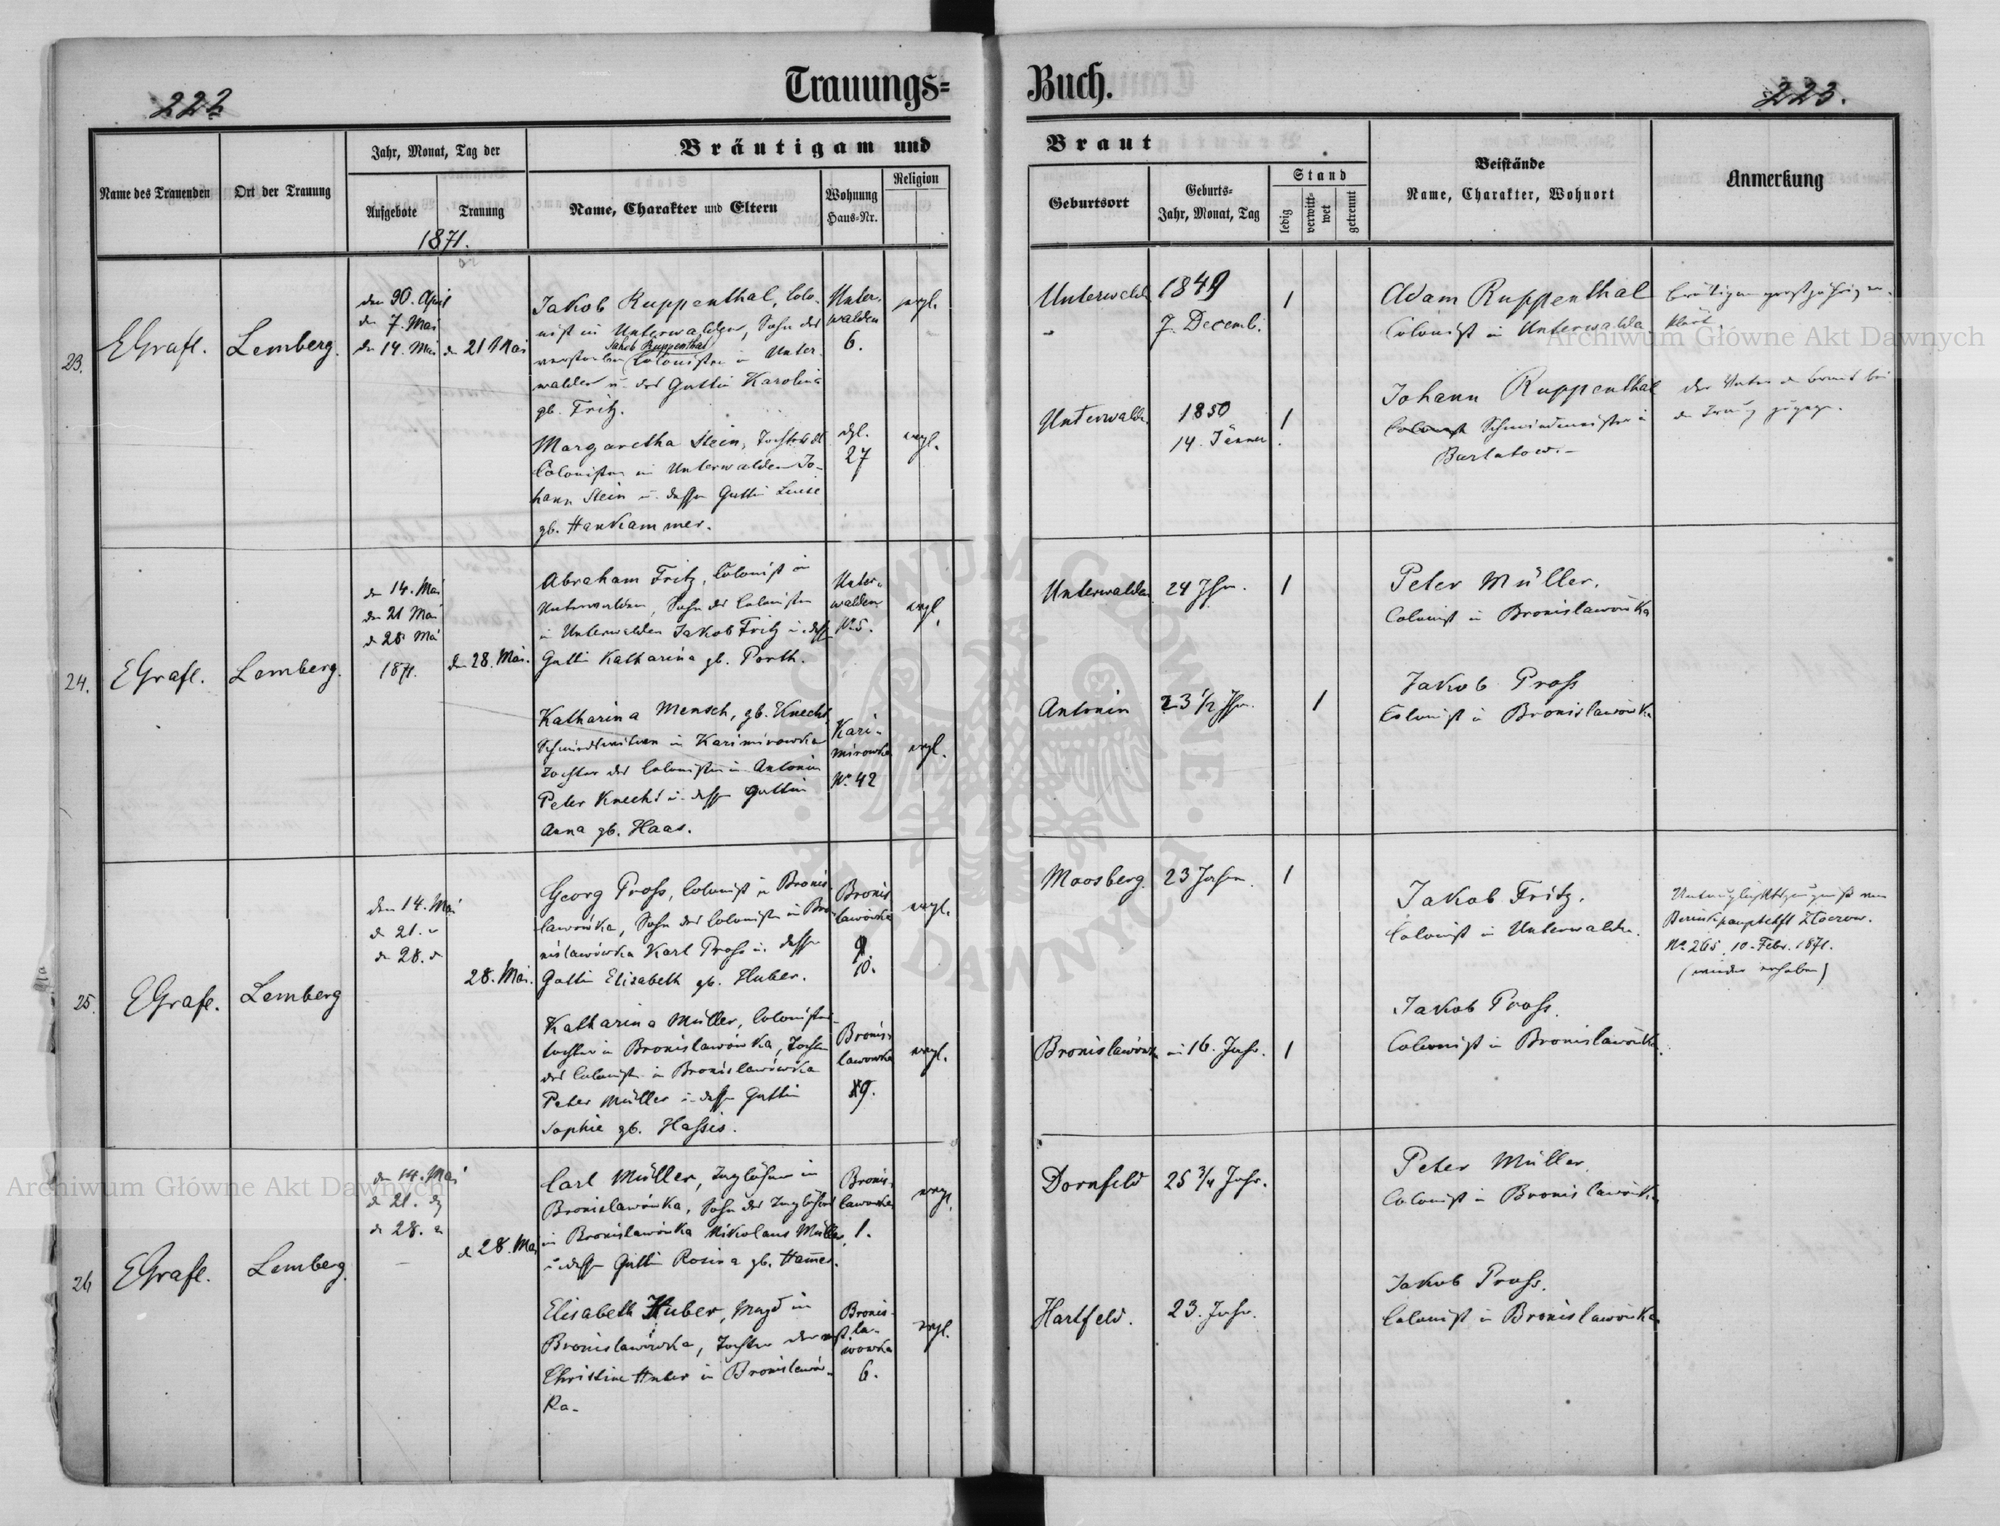 222
Trauungs=
Buch.
223.
Name des Trauenden
Ort der Trauung
Jahr, Monat, Tag der
Aufgebote
Trauung
1871.
Bräutigam und
Name, Charakter und Eltern
Wohnung
Haus=Nr.
Religion
Braut
Geburtsort
Geburts=
Jahr, Monat, Tag
Stand
ledig
verwitt=
wet
getrennt
Beistände
Name, Charakter, Wohnort
Anmerkung
23.
EGrafl.
Lemberg.
den 30. April
den 7. Mai
den 14. Mai
den 21 Mai
Jakob Ruppenthal, Colo-
nist in Unterwalden, Sohn des
verstorbn Jakob Ruppenthal Colonisten in Unter-
walden u. der Gattin Karolina
gb. Fritz.
Unter-
walden
6.
evgl.
Unterwald
1849
7. Decemb.
1
Adam Ruppenthal
Colonist in Unterwalde
Margaretha Stein, Tochter des
Colonisten in Unterwalden Jo-
hann Stein u. dessen Gattin Luise
gb. Hankammer.
dgl.
27
evgl.
Unterwalde.
1850
14. Jänner
1
Johann Ruppenthal
Schmiedmeister in
Burlatow.
24.
EGrafl.
Lemberg.
den 14. Mai
den 21 Mai
den 28 Mai
1871.
den 28. Mai.
Abraham Fritz, Colonist in
Unterwalden, Sohn des Colonisten
in Unterwalden Jakob Fritz u. dessen
Gattin Katharina gb. Porth.
Unter-
walden
No 5.
evgl.
Unterwalden
24 Jhr.
1
Peter Müller.
Colonist in Bronislawówka
Katharina Mensch, gb. Knecht,
Schmiedswitwe in Kazimirowka
Tochter des Colonisten in Antonin
Peter Knecht u. dessen Gattin
Anna gb. Haas.
Kazi-
mirowka
No 42
evgl.
Antonin
23 1/2 Jhr.
1
Jakob Pross
Colonist in Bronislawowka
25.
EGrafl.
Lemberg
den 14. Mai
d 21. "
d 28. "
28. Mai.
Georg Pross, Colonist in Bronis-
lawówka, Sohn des Colonisten in Bro-
nislawówka Karl Pross u. dessen
Gattin Elisabeth gb. Huber.
Bronis-
lawówka
10.
evgl.
Moosberg.
23 Jahre.
1
Jakob Fritz.
Colonist in Unterwalde.
Zloczow.
No 265, 10. Febr. 1871.
Katharina Müller, Colonisten-
tochter in Bronislawówka, Tochter
des Colonisten in Bronislawówka
Peter Müller u. dessen Gattin
Sophie gb. Hassis.
Bronis-
lawowka
9.
evgl.
Bronislawówka
im 16. Jahr.
1
Jakob Pross.
Colonist in Bronislawówka.
26
EGrafl.
Lemberg.
den 14. Mai
d 21.
d 28.
d 28. Mai
Carl Müller, Taglöhner in
Bronislawówka, Sohn des Taglöhners
in Bronislawówka Nikolaus Müller,
u. dessen Gattin Rosina gb. Hames.
Bronis-
lawowka
1.
evgl.
Dornfeld
25 3/4 Jahr.
Peter Müller.
Colonist in Bronislawówka
Elisabeth Huber, Magd in
Bronislawówka, Tochter der verst.
Christine Huber in Bronislawów-
ka.
Bronis-
la-
wowka
6.
evgl.
Hartfeld.
23. Jahr.
Jakob Pross.
Colonist in Bronislawówka
Archiwum Główne Akt Dawnych
Archiwum Główne Akt Dawnych
ARCHIWUM GŁÓWNE AKT DAWNYCH